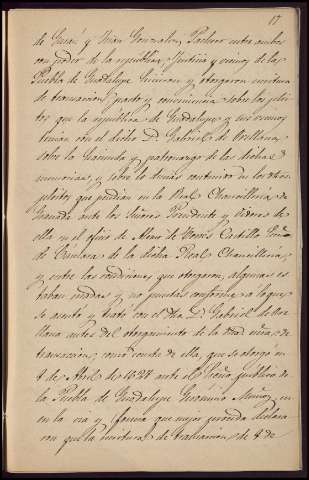 17
de Guini y Juan Gonzalez, Pachero entre ambos
con poder de la republica, Justicia y vecinos de la
Puebla de Guadalupe hicieron y otorgaron escritura
de transaccion, pacto y conveniencia sobre los pleitos
que la republica de Guadalupe y sus vecinos
tenian con el dicho D. Gabriel de Orellana
sobre la hacienda y patronazgo de las dichas
memorias, y sobre lo demas contenido en los otros
pleitos que pendian en la Real Chancilleria de
Granada ante los Señores Presidente y Oidores de
ella en el oficio de Alonso de Torres Castillo Escno
de Camara de la dicha Real Chancilleria,
y entre las condiciones que otorgaron, algunas es
taban erradas y no puestas conforme a lo que
se asento y trato con el dho D. Gabriel de Ore
llana antes del otorgamiento de la dha escra de
transaccion, como consta de ella, que se otorgo en
4 de Abril de 1627 ante el Escno publico de
la Puebla de Guadalupe Geronimo Muñoz, en
en la via y forma que mejor pueda declara
ron que la escritura de transaccion de 4 de